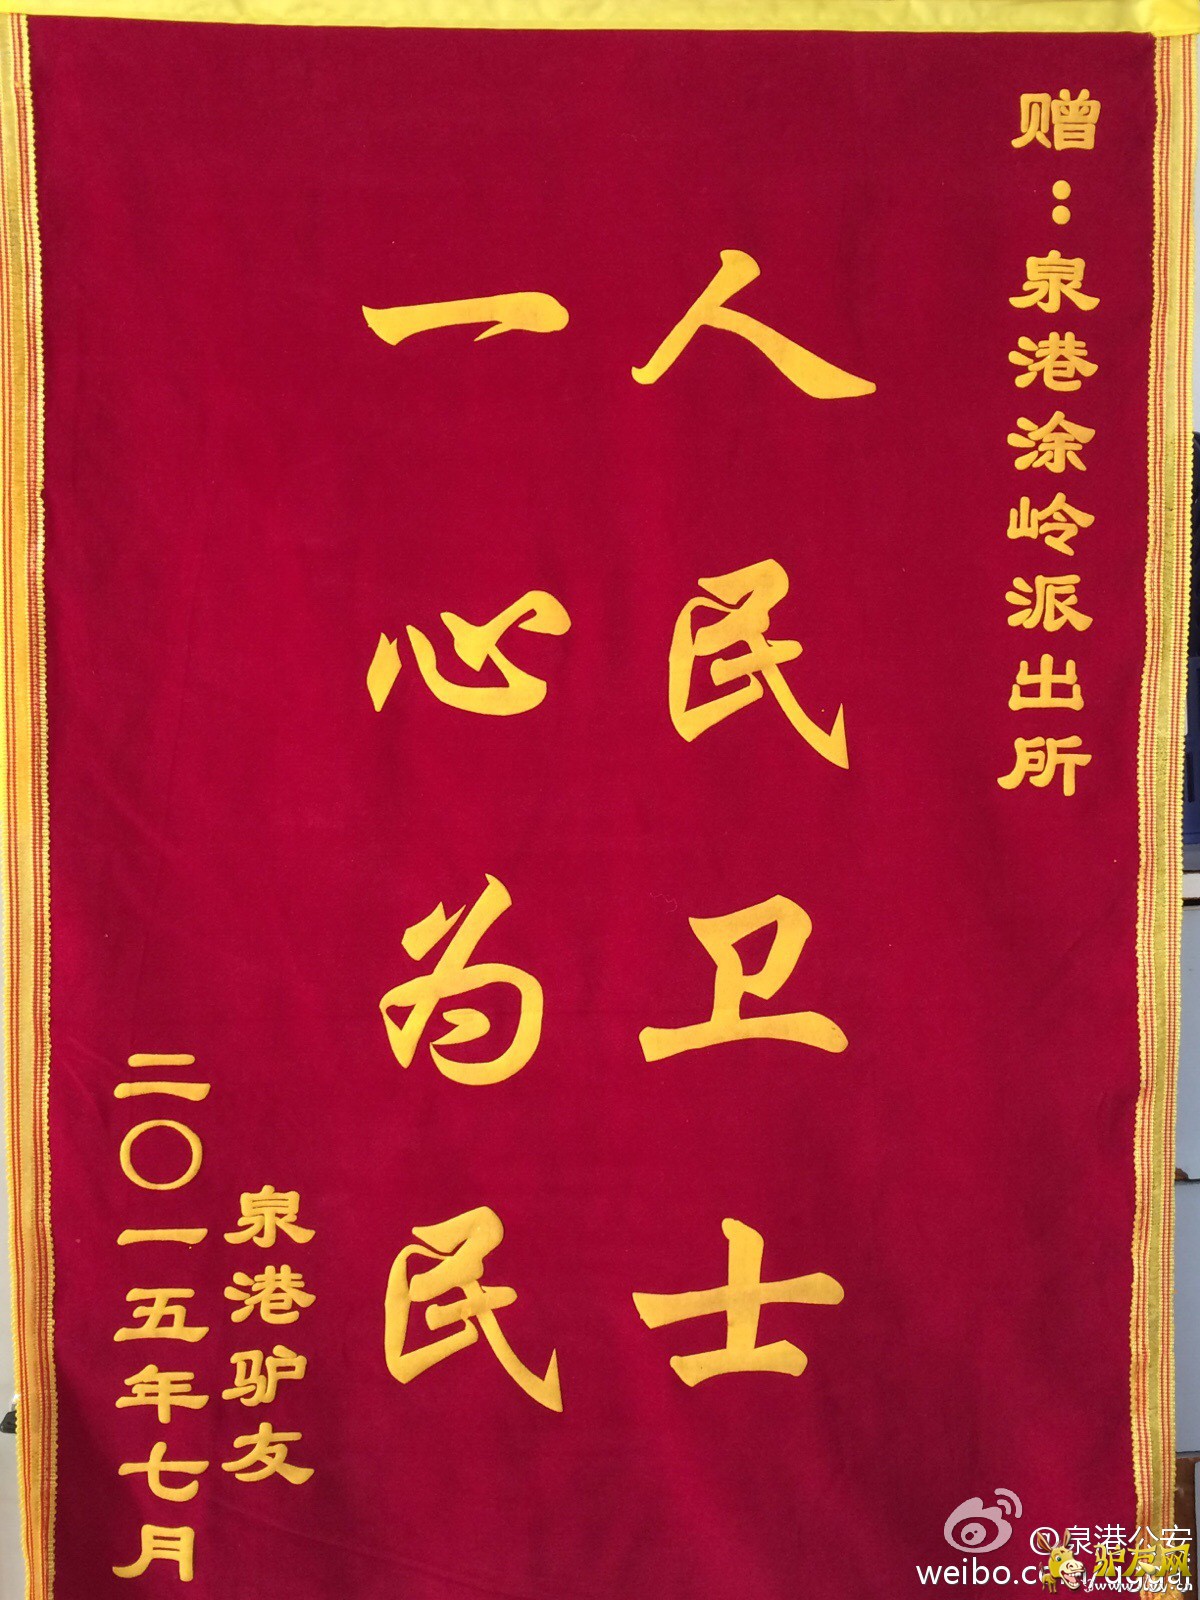 赠：泉港涂岭派出所
人民卫士
一心为民
泉港驴友
二〇一五年七月
@泉港公安
驴友网